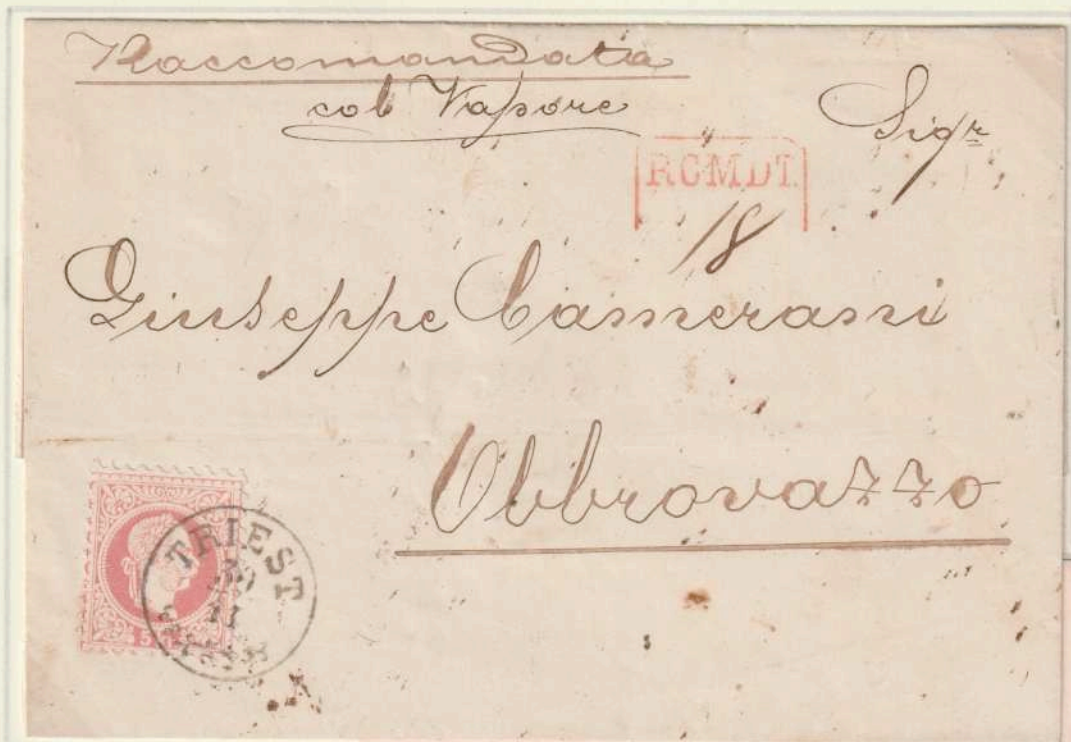 Raccomandata
col Vapore
Sigr
RCMDT.
18
Giuseppe Camerani
Obbrovazzo
TRIEST
30
11
5